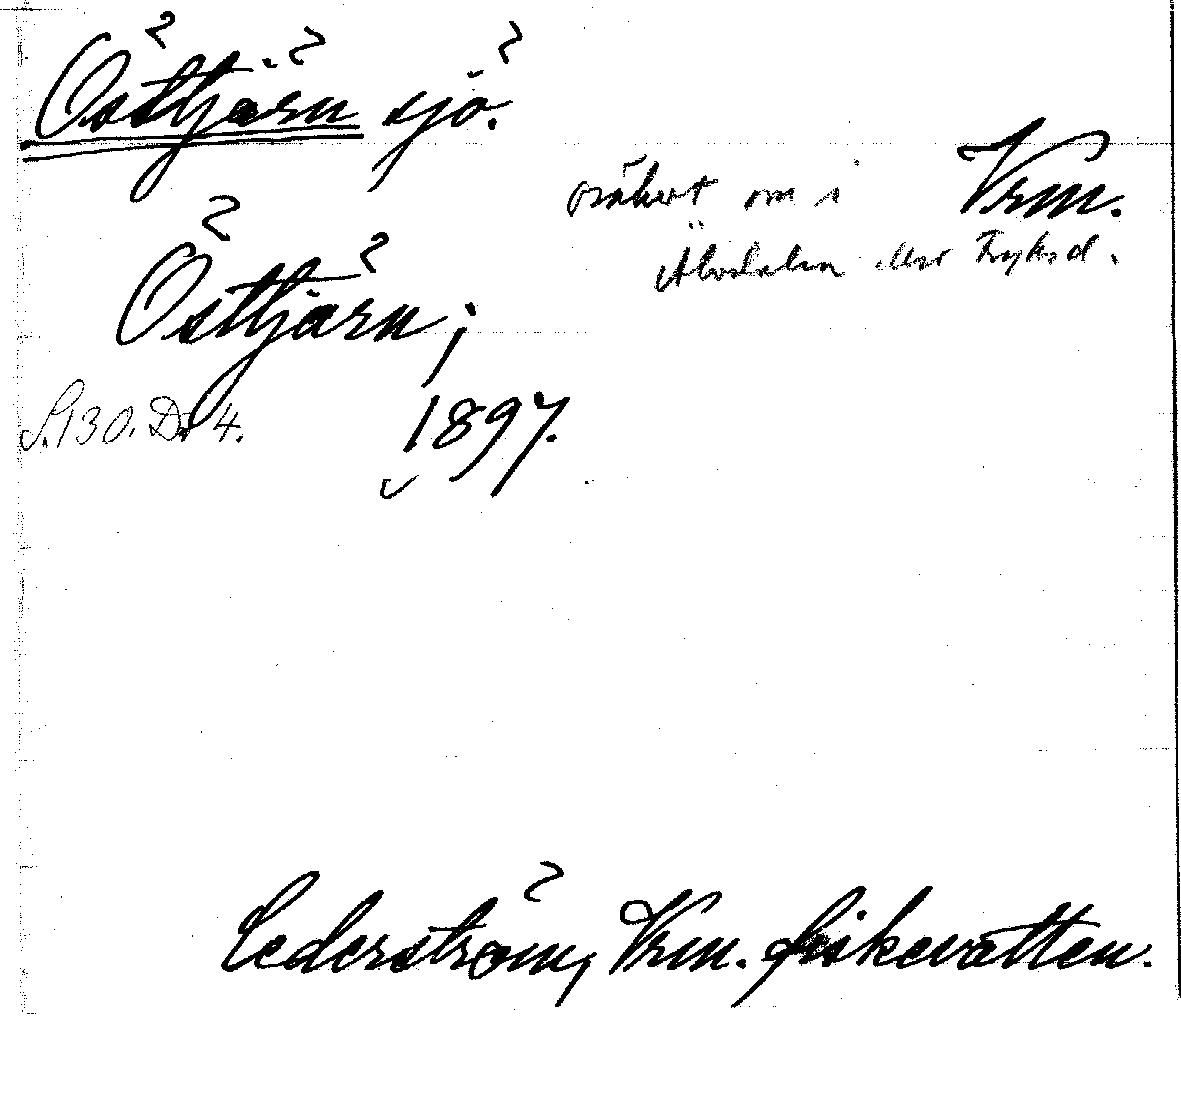 Östtjärn sjö.
Vrm.
osäkert om i
Älvdalen eller Fryksd.
Östtjärn;
S. 130. Dr 4.
1897.
Cederström, Vrm. fiskevatten.